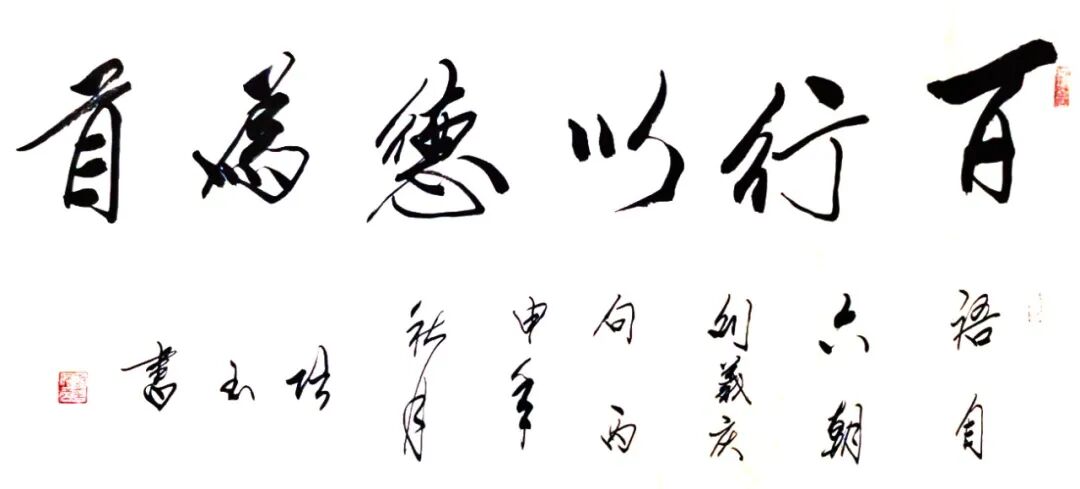 百行以德為首
語自
六朝
刘義庆
句丙
申年
秋月
玉
書